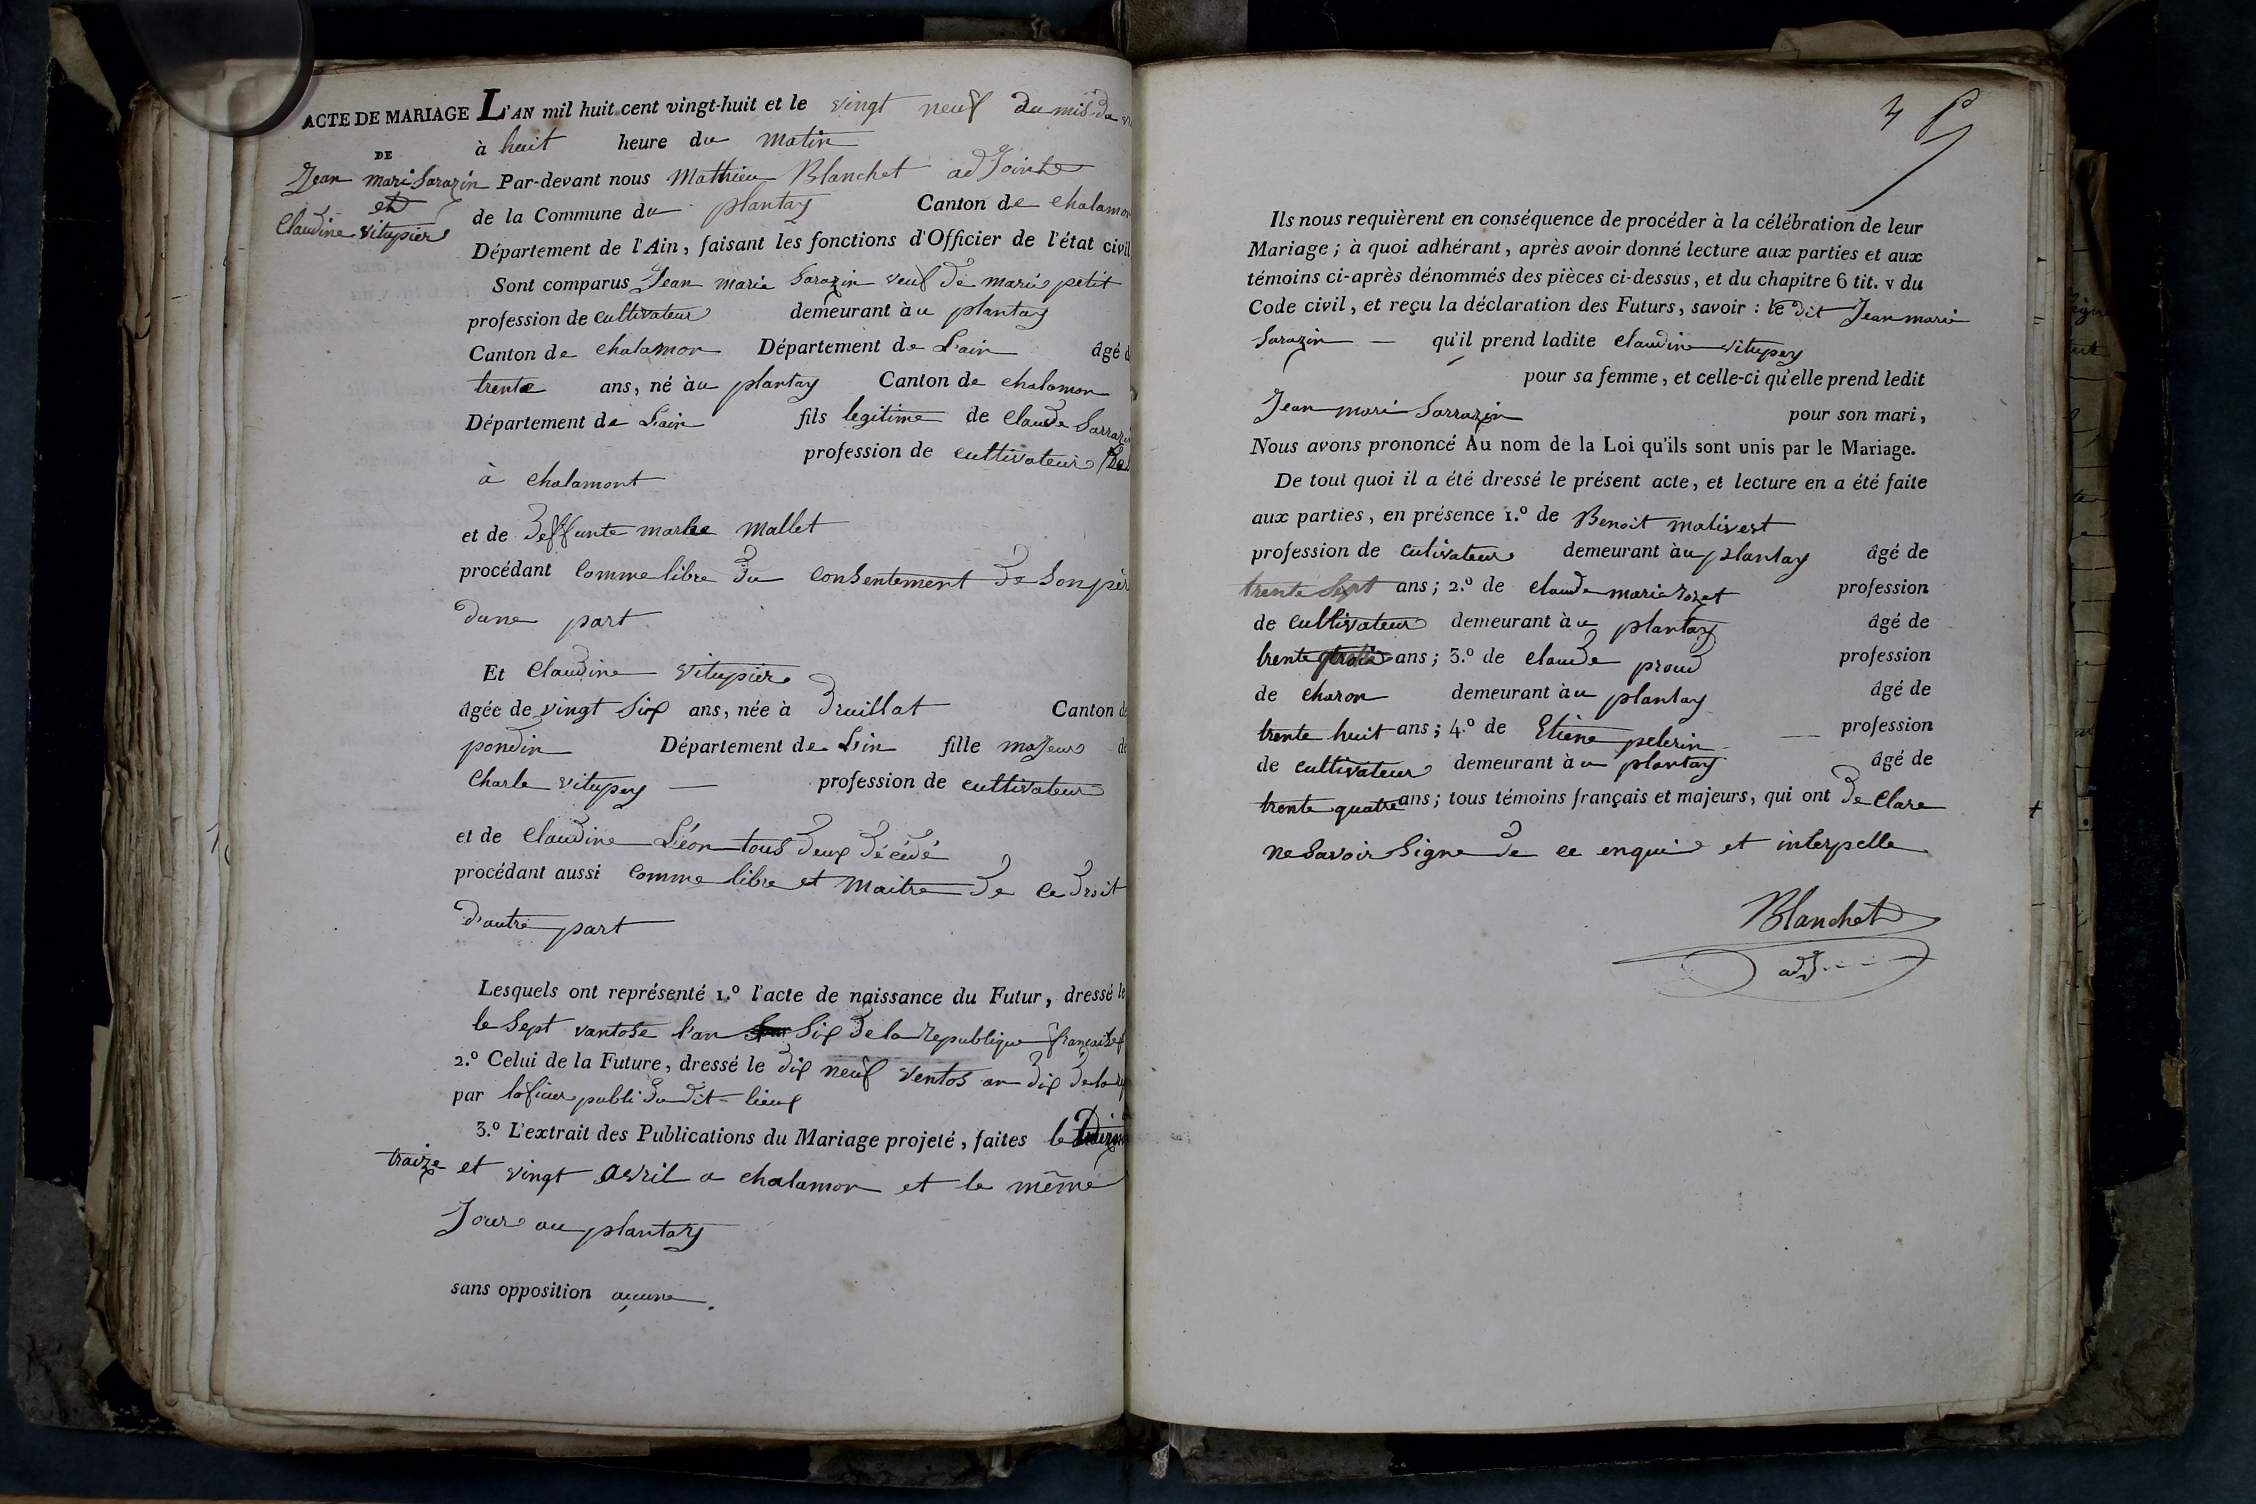 ACTE DE MARIAGE L'AN mil huit cent vingt-huit et le vingt neuf du mis da
DE
à huit heure du matin
Jean mari Sarazin
et
Claudine vitupier
Par-devant nous Mathieu Blanchet adjoint
de la Commune du plantay Canton de chalamon
Département de l'Ain, faisant les fonctions d'Officier de l'état civil
Sont comparus Jean marie Sarazin veuf de marie petit
profession de cultivateur demeurant àu plantay
Canton de chalamon Département de L'ain âgé
trente ans, né àu plantay Canton de chalamon
Département de L'ain fils legitime de Claude Sarrazin
profession de cultivateur
à chalamont
et de deffunte marie mallet
procédant comme libre du consentement de son pèr
dune part
Et Claudine vitupier
âgée de vingt six ans, née à druillat Canton de
pondin Département de L'in fille majeur de
Charle vitupey — profession de cultivateur
et de Claudine Léon tous deux décédé
procédant aussi comme libre et maitre de ce droit
d'autre part
Lesquels ont représenté 1.º l'acte de naissance du Futur, dressé le
le sept vantose l'an six de la republique française
2.º Celui de la Future, dressé le dix neuf ventos an dix de la
par loficier publi du dit lieux
3.º L'extrait des Publications du Mariage projeté, faites le
traize et vingt avril a chalamon et le même
Jour au plantay
sans opposition aucune.
Ils nous requièrent en conséquence de procéder à la célébration de leur
Mariage; à quoi adhérant, après avoir donné lecture aux parties et aux
témoins ci-après dénommés des pièces ci-dessus, et du chapitre 6 tit. v du
Code civil, et reçu la déclaration des Futurs, savoir : le dit Jean mari
Sarazin — qu'il prend ladite claudine vitupey
pour sa femme, et celle-ci qu'elle prend ledit
Jean mari Sarrazin pour son mari,
Nous avons prononcé Au nom de la Loi qu'ils sont unis par le Mariage.
De tout quoi il a été dressé le présent acte, et lecture en a été faite
aux parties, en présence 1.º de Benoit malivert
profession de cutivateur demeurant àu plantay âgé de
trente sept ans; 2.º de claude marie rozet profession
de cultivateur demeurant àu plantay âgé de
trente trois ans; 3.º de claude proud profession
de charon demeurant àu plantay âgé de
trente huit ans; 4.º de Etiène pelerin — profession
de cultivateur demeurant àu plantay âgé de
trente quatre ans; tous témoins français et majeurs, qui ont de clare
ne savoir signe de ce enquis et interpelle
Blanchet
adj